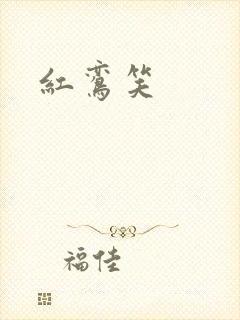 紅鸞笑
福佳